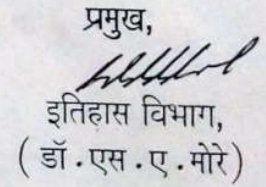 प्रमुख,
इतिहास विभाग,
( डॉ . एस . ए . मोरे )